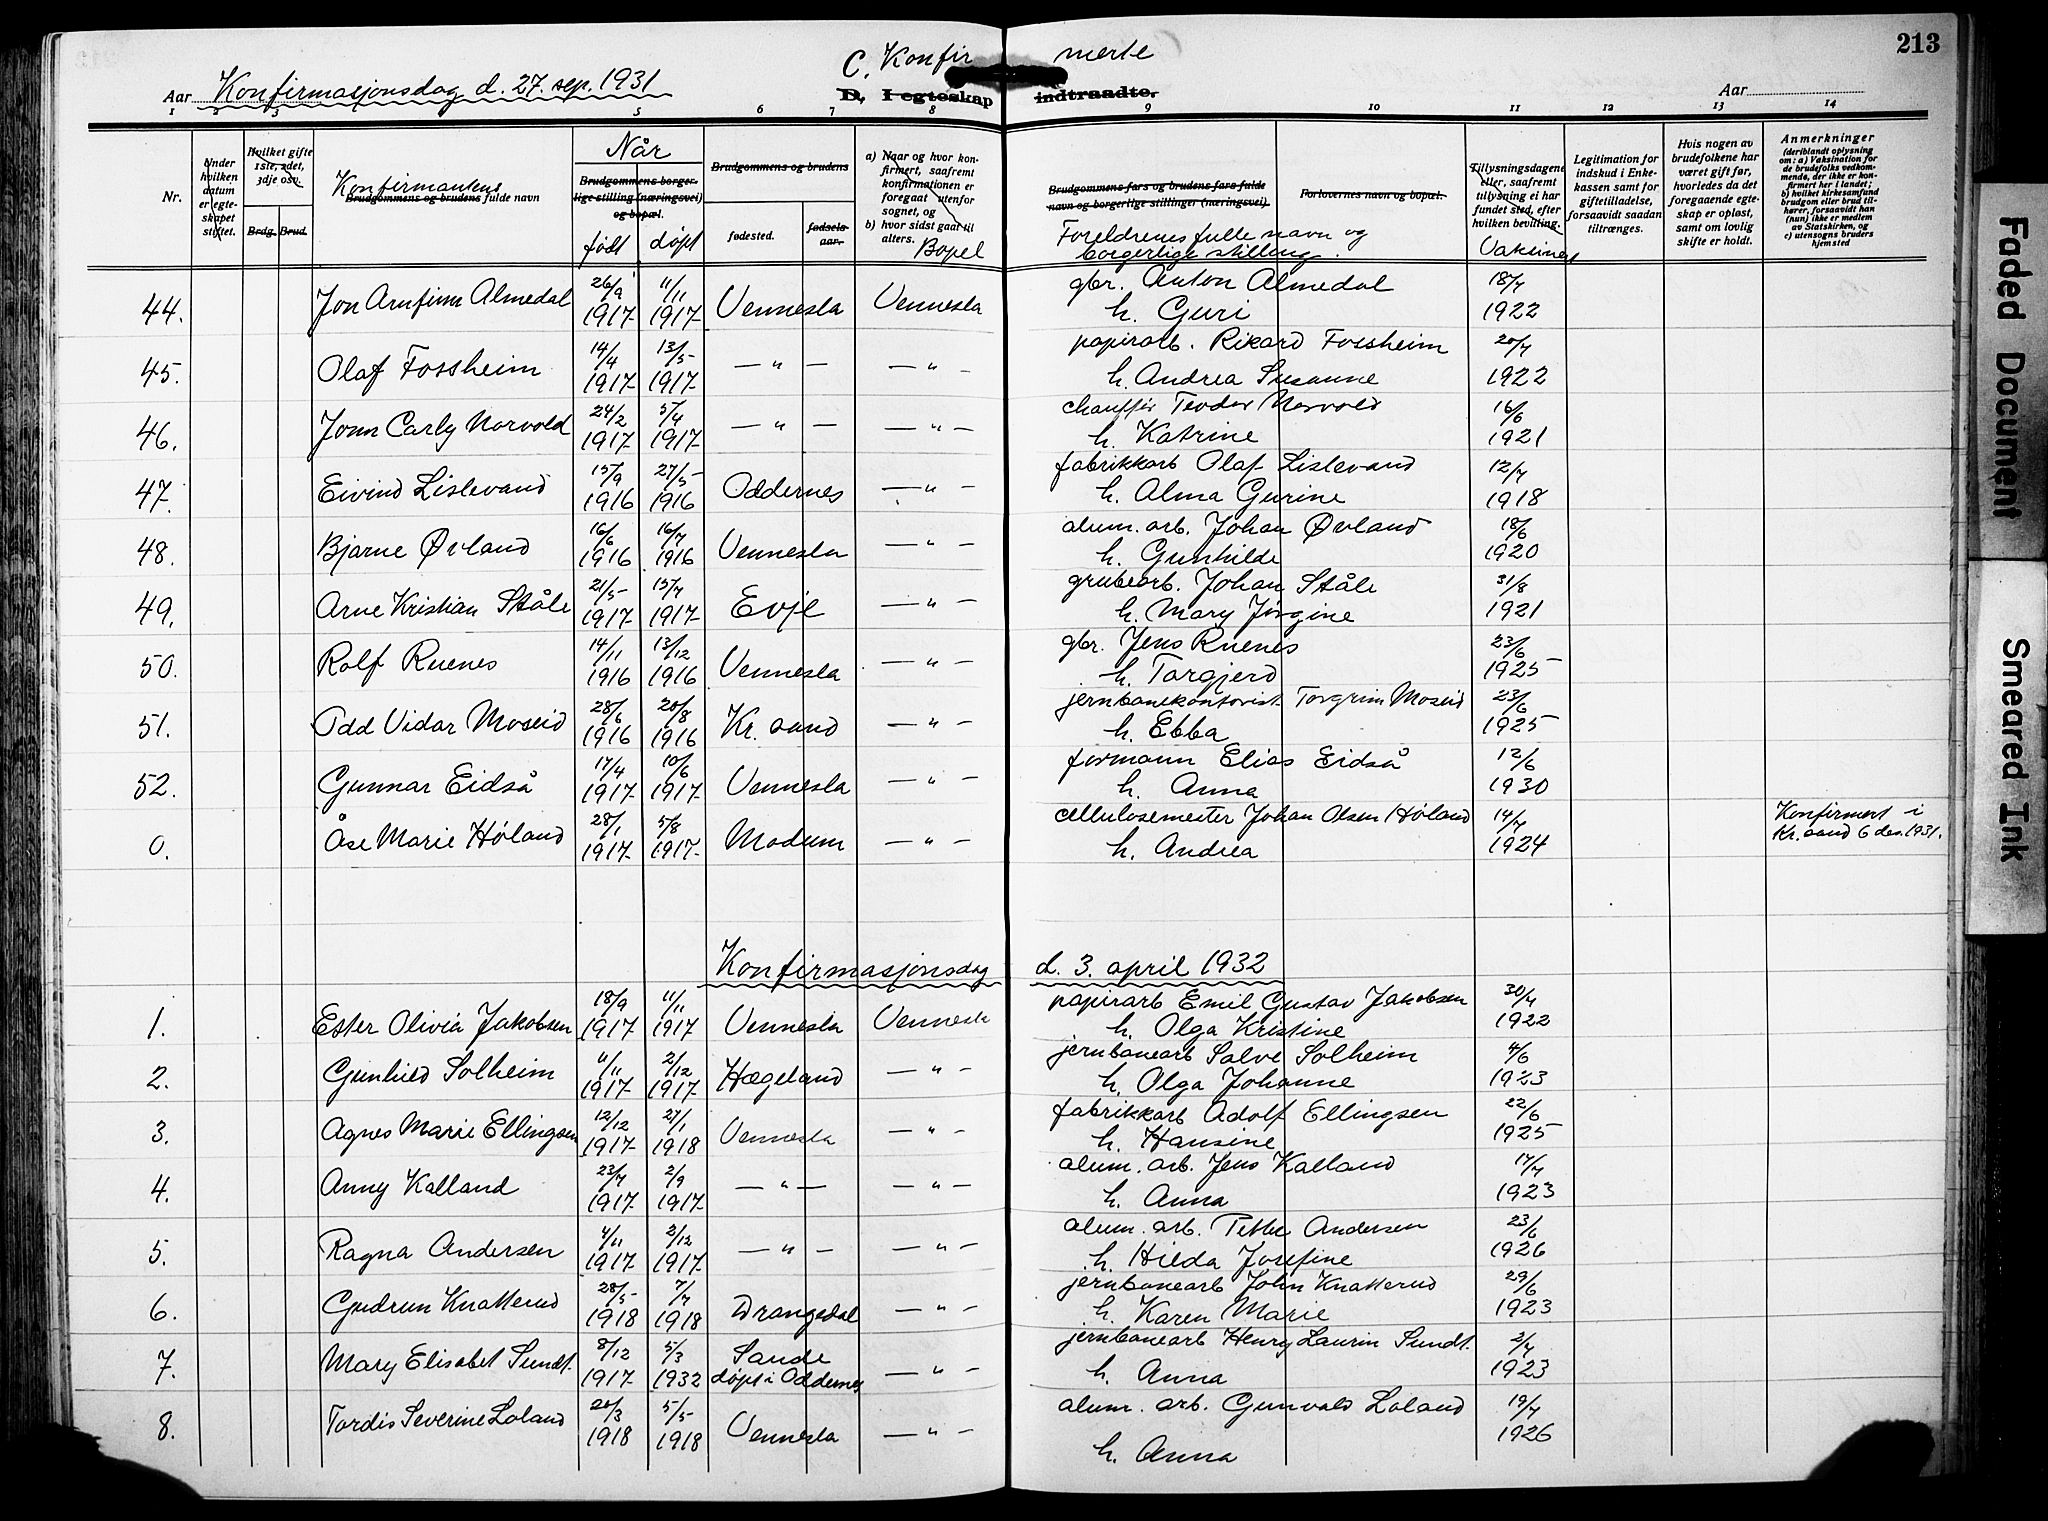 213
C. Konfirmerte
Konfirmasjonsdag d. 27. sep. 1931
Aar
D. I egteskap indtraadte.
Aar
1 2 3 5 6 7 8 9 10 11 12 13 14
Nr.
Under hvilken datum er egteskapet stiftet.
Hvilket gifte 1ste, 2det, 3dje osv.
Brdg. Brud.
Konfirmantens
Brudgommens og brudens fulde navn
Når
Brudgommens borgerlige stilling (næringsvei) og bopæl.
født døpt
Brudgommens og brudens
fødested. fødselsaar.
a) Naar og hvor konfirmert, saafremt konfirmationen er foregaat utenfor sognet, og
b) hvor sidst gaat til alters.
Bopel
Brudgommens fars og brudens fars fulde navn og borgerlige stillinger (næringsvei).
Foreldrenes fulle navn og borgerlige stilling.
Forlovernes navn og bopæl.
Tillysningsdagene eller, saafremt tillysning ei har fundet sted, efter hvilken bevilling.
Vaksinert
Legitimation for indskud i Enkekassen samt for giftetilladelse, forsaavidt saadan tiltrænges.
Hvis nogen av brudefolkene har været gift før, hvorledes da det foregaaende egteskap er opløst, samt om lovlig skifte er holdt.
Anmerkninger (deriblandt oplysning om: a) Vaksination for de brudefolks vedkommende, der ikke er konfirmert her i landet; b) hvilket kirkesamfund brudgom eller brud tilhører, forsaavidt han (hun) ikke er medlem av Statskirken, og c) utensogns bruders hjemsted
44. Jon Arnfinn Almedal 26/9 1917 11/11 1917 Vennesla Vennesla gbr. Anton Almedal 18/7 1922
h. Guri
45. Olaf Fossheim 14/4 1917 13/5 1917 — " — — " — papirarb. Rikard Fossheim 20/7 1922
h. Andrea Susanne
46. Jonn Carly Norvold 24/2 1917 5/4 1917 — " — — " — chauffør Teodor Norvold 16/6 1921
h. Katrine
47. Eivind Lislevand 15/9 1916 27/5 1916 Oddernes — " — fabrikkarb Olaf Lislevand 12/7 1918
h. Alma Gurine
48. Bjarne Øvland 16/6 1916 16/7 1916 Vennesla — " — alum. arb. Johan Øvland 18/6 1920
h. Gunhilde
49. Arne Kristian Ståle 21/5 1917 15/7 1917 Evje — " — grubearb. Johan Ståle 31/8 1921
h. Mary Jørgine
50. Rolf Ruenes 14/11 1916 13/12 1916 Vennesla — " — gbr. Jens Ruenes 23/6 1925
h. Torgjerd
51. Odd Vidar Moseid 28/6 1916 20/8 1916 Kr. sand — " — jernbanekontorist Torgrim Moseid 23/6 1925
h. Ebba
52. Gunnar Eidså 17/4 1917 10/6 1917 Vennesla — " — formann Elias Eidså 12/6 1930
h. Anna
0. Åse Marie Høland 28/1 1917 5/8 1917 Modum — " — cellulosemester Johan Olsen Høland 14/7 1924 Konfirmert i Kr. sand 6 des. 1931.
h. Andrea
Konfirmasjonsdag d. 3. april 1932
1. Ester Olivia Jakobsen 18/9 1917 11/11 1917 Vennesla Vennesla papirarb Emil Gustav Jakobsen 30/7 1922
h. Olga Kristine
2. Gunhild Solheim 11/11 1917 2/12 1917 Hægeland — " — jernbanearb Salve Solheim 4/6 1923
h. Olga Johanne
3. Agnes Marie Ellingsen 12/12 1917 27/1 1918 Vennesla — " — fabrikkarb Adolf Ellingsen 22/6 1925
h. Hansine
4. Anny Kalland 23/7 1917 2/9 1917 — " — — " — alum. arb. Jens Kalland 17/7 1923
h. Anna
5. Ragna Andersen 4/11 1917 2/12 1917 — " — — " — alum. arb. Petter Andersen 23/6 1926
h. Hilda Josefine
6. Gudrun Knatterud 28/5 1918 7/7 1918 Drangedal — " — jernbanearb John Knatterud 29/6 1923
h. Karen Marie
7. Mary Elisabet Sundt. 8/12 1917 5/3 1932 Sande døpt i Oddernes — " — jernbanearb Henry Laurin Sundt. 2/7 1923
h. Anna
8. Tordis Severine Loland 20/3 1918 5/5 1918 Vennesla — " — alum. arb. Gunvald Loland 19/7 1926
h. Anna
Faded Document
Smeared Ink